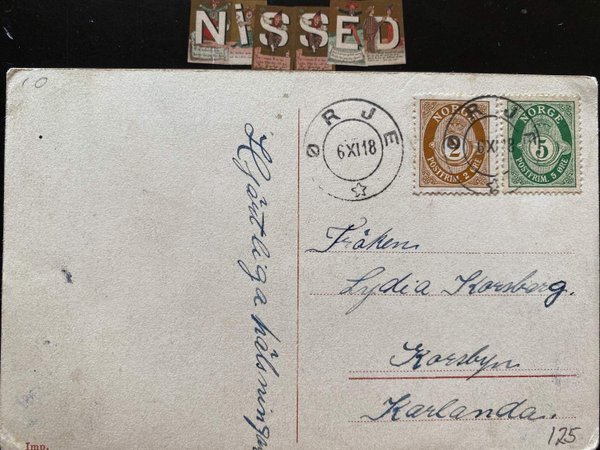 NISSED
10
ØRJE
6XI18
NORGE
2
POSTFRIM. 2 ØRE
NORGE
5
POSTFRIM. 5 ØRE
ØRJE
6XI18
Hjärtliga hälsningar
Fröken
Lydia Korsberg.
Korsbyn
Karlanda.
125
Imp.